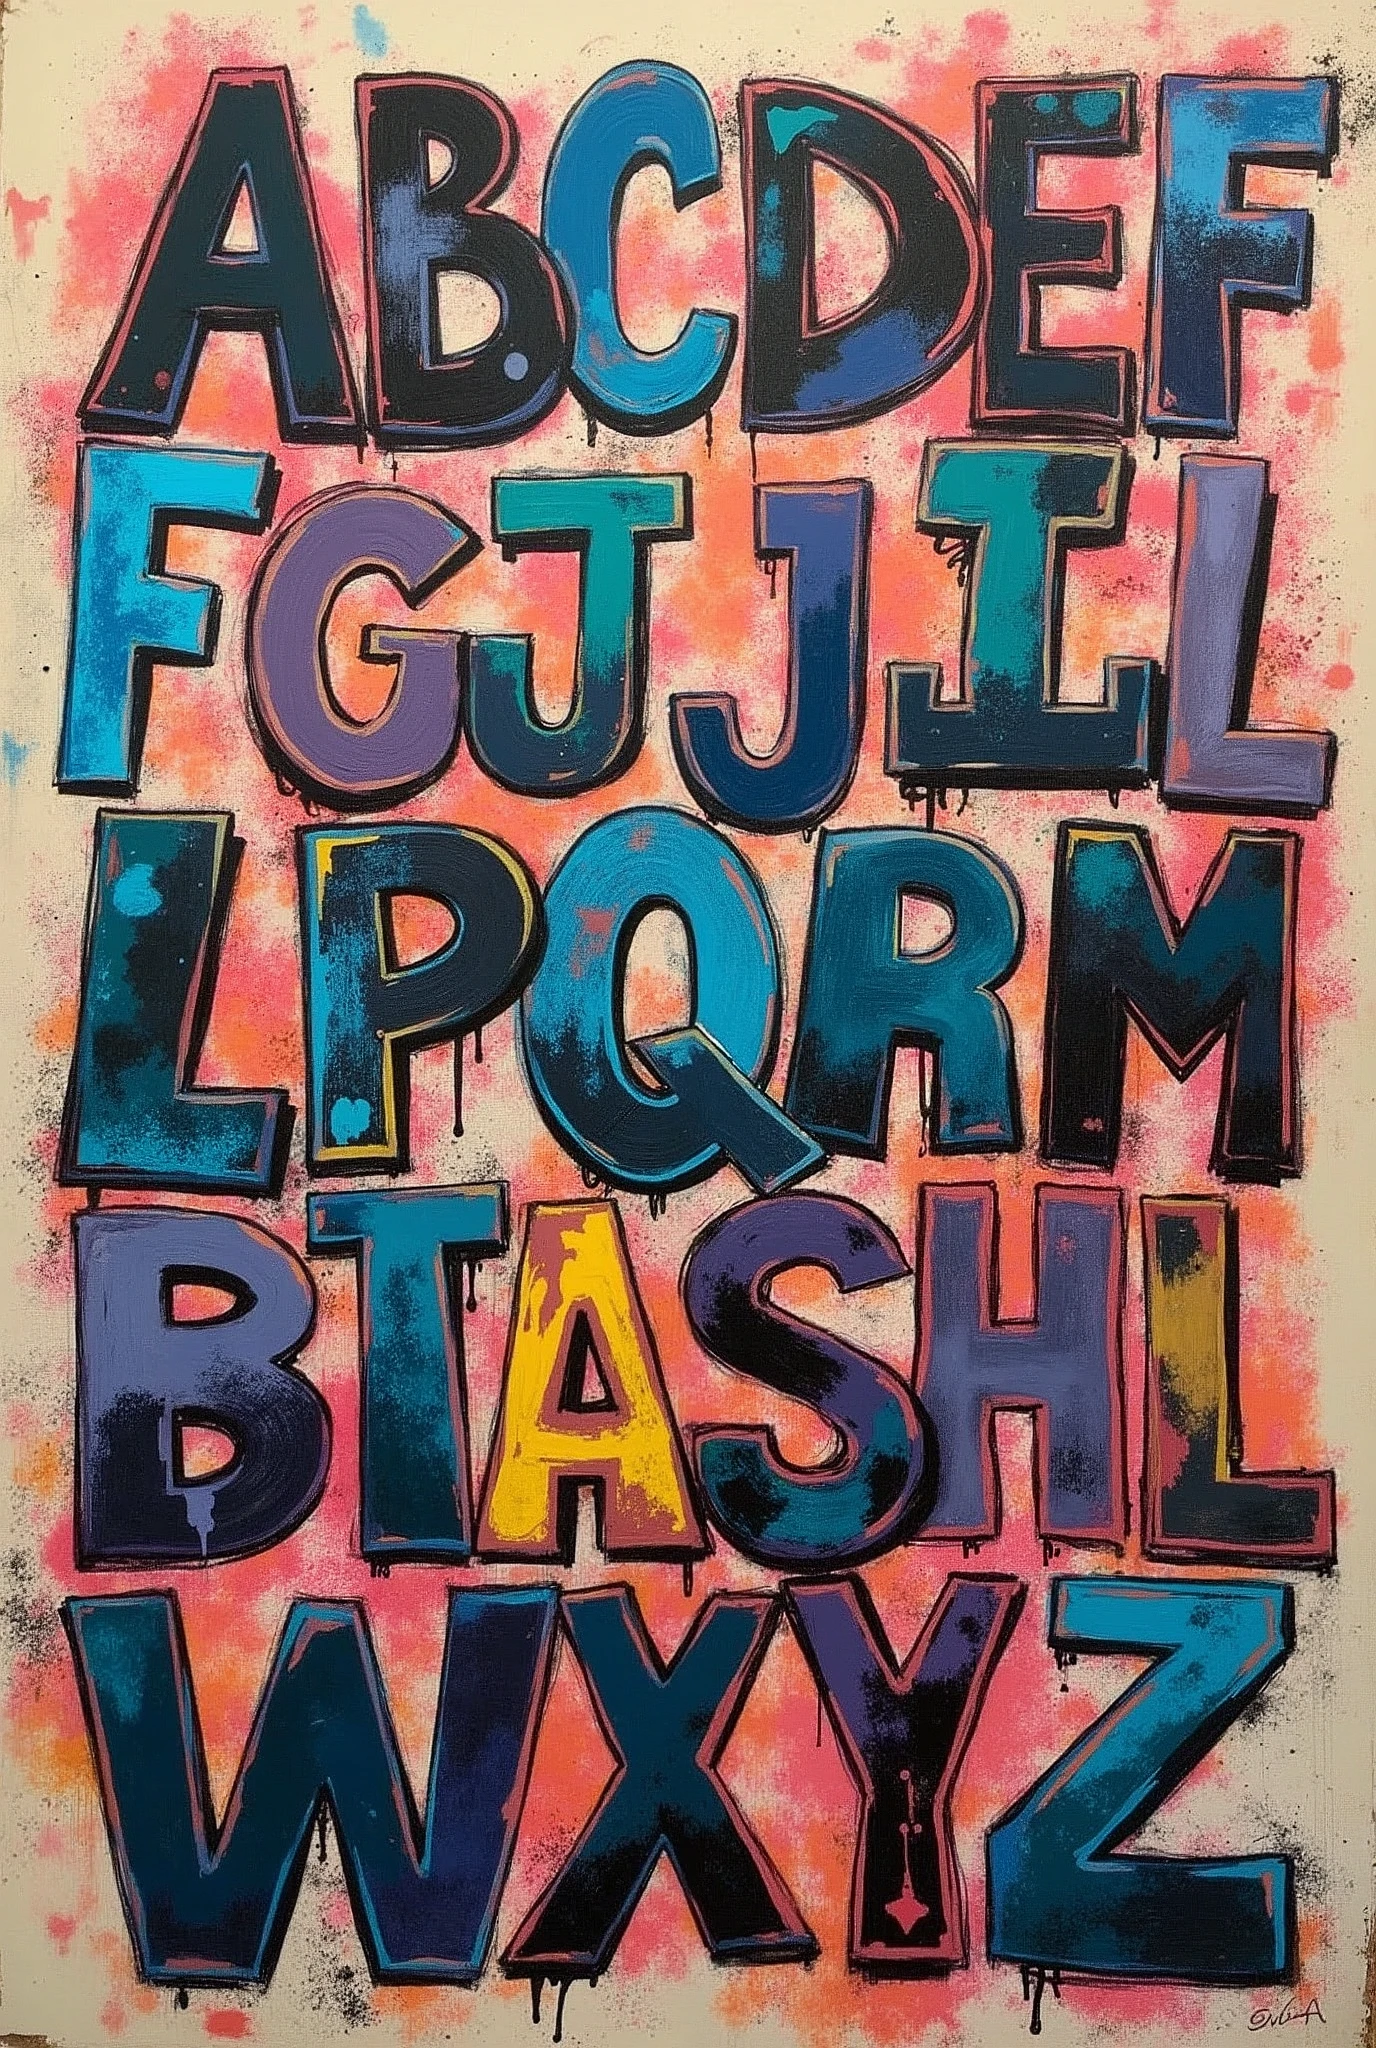 ABCDEF
FGJJIL
LPQRM
BTASHL
WXYZ